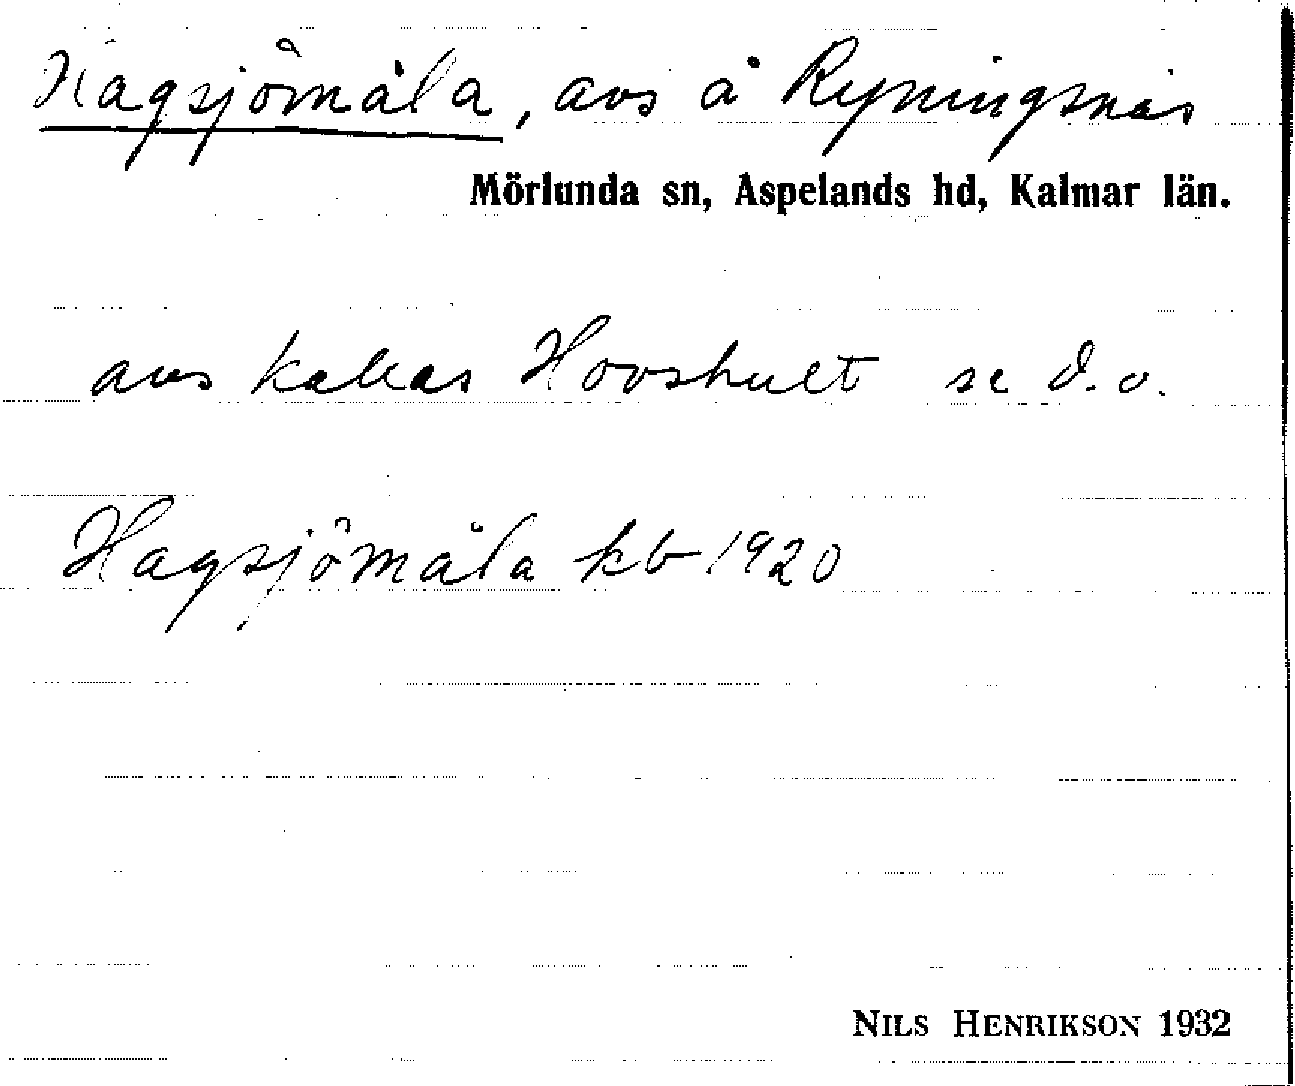 Hagsjömåla, avs å Ryningsnäs
Mörlunda sn, Aspelands hd, Kalmar län.
avs kallas Hovshult se d. o.
Hagsjömåla kb 1920
NILS HENRIKSON 1932